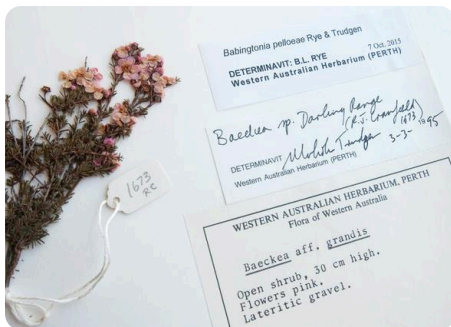 Babingtonia pelloeae Rye & Trudgen
7 Oct. 2015
DETERMINAVIT: B.L. RYE
Western Australian Herbarium (PERTH)
Baeckea sp. Darling Range
(R.J. Cranfield
1673)
DETERMINAVIT Malcolm Trudgen 3-3-1995
Western Australian Herbarium (PERTH)
1673
RC
WESTERN AUSTRALIAN HERBARIUM, PERTH
Flora of Western Australia
Baeckea aff. grandis
Open shrub, 30 cm high.
Flowers pink.
Lateritic gravel.